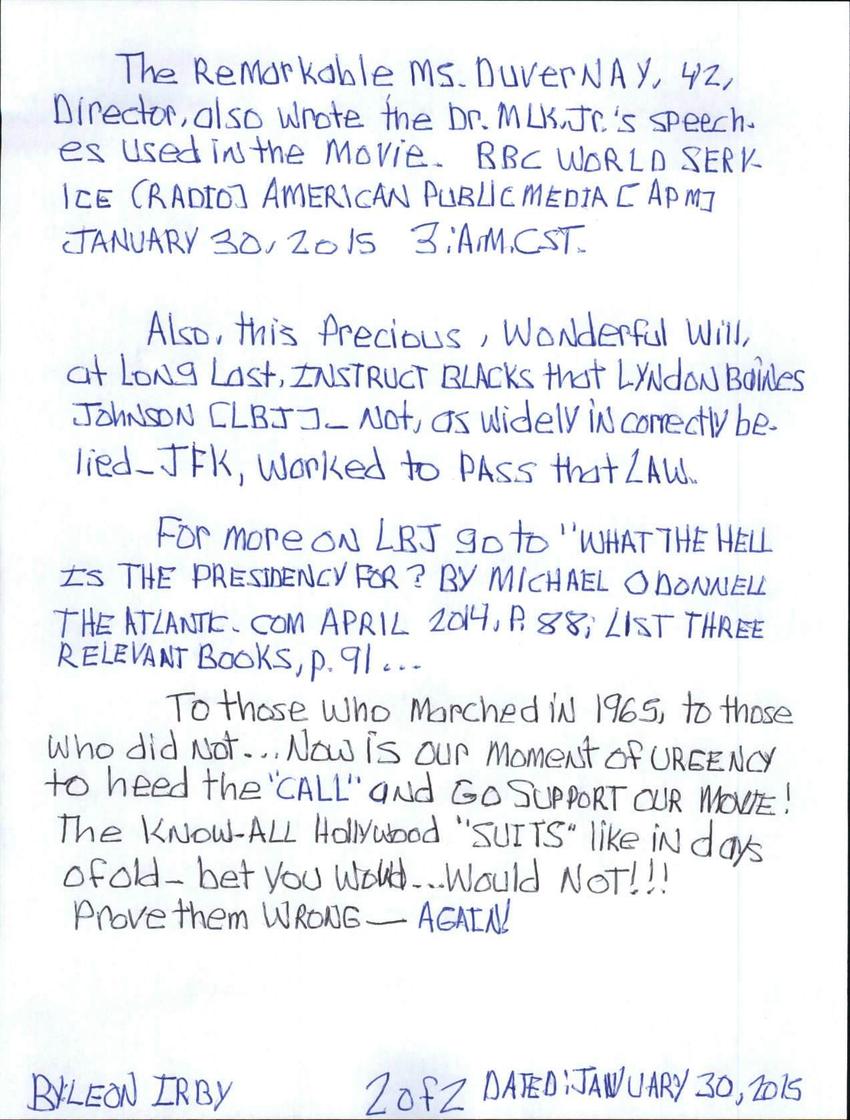 The Remarkable Ms. DuverNAY, 42,
Director, also wrote the Dr. MLK.Jr.'s speech-
es used in the Movie. BBC WORLD SERV-
ICE [RADIO] AMERICAN PUBLIC MEDIA [APM]
JANUARY 30, 2015 3:A.M.CST.
Also, this Precious, Wonderful Will,
at Long Last, INSTRUCT BLACKS that LYNdoN Baines
JohNSON [LBJ] — Not, as widely incorrectly be-
lied — JFK, Worked to PASS that LAW.
For more ON LBJ go to "WHAT THE HELL
IS THE PRESIDENCY FOR? BY MICHAEL ODONNELL
THE ATLANTIC. COM APRIL 2014, P. 88; LIST THREE
RELEVANT BOOKS, p. 91...
To those who Marched in 1965, to those
who did Not... Now is our moment of URGENCY
to heed the "CALL" and GO SUPPORT OUR MOVIE!
The KNOW-ALL Hollywood "SUITS" like in days
of old — bet you Would... Would NOT!!!
Prove them WRONG — AGAIN!
BY:LEON IRBY 2 of 2 DATED:JANUARY 30, 2015